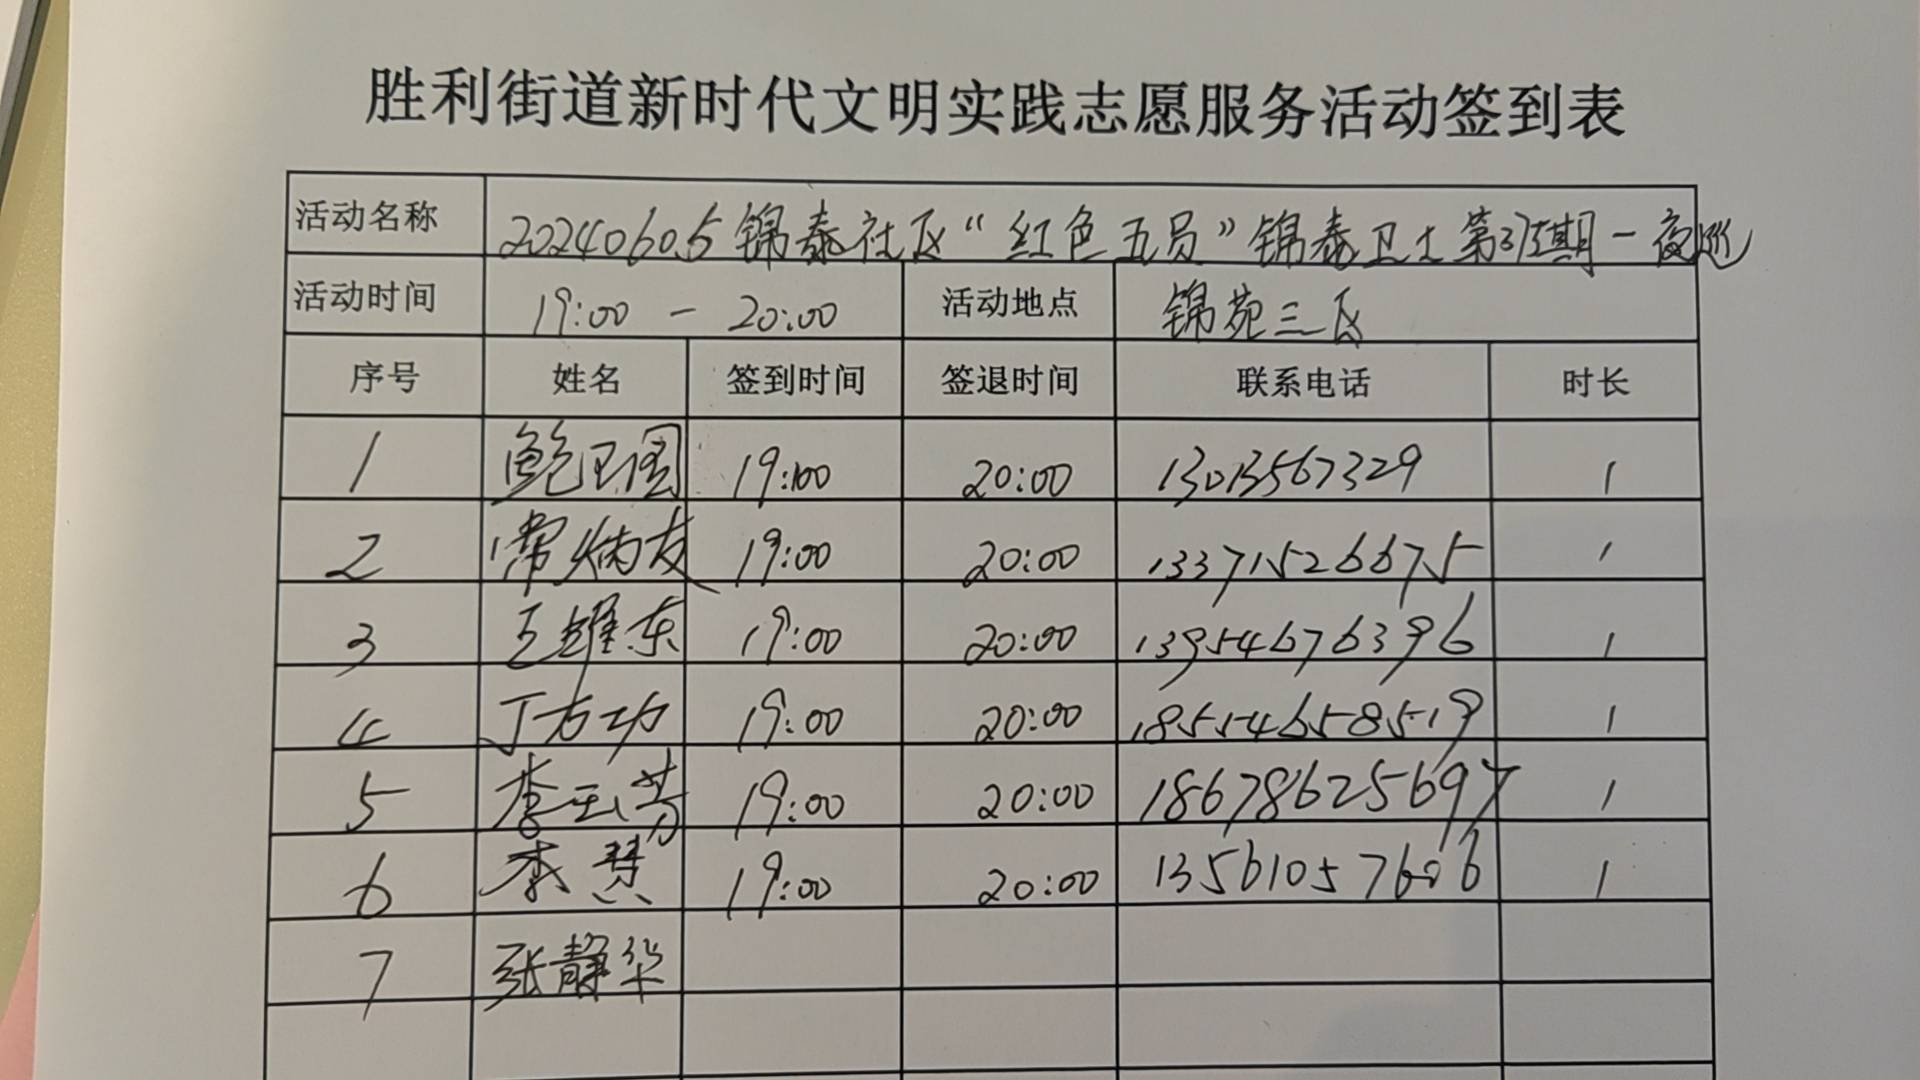 胜利街道新时代文明实践志愿服务活动签到表
活动名称 20240605锦泰社区“红色五员”锦泰卫士第375期一夜巡
活动时间 19:00 - 20:00 活动地点 锦苑三区
序号 姓名 签到时间 签退时间 联系电话 时长
1 鲍卫国 19:00 20:00 13013567329 1
2 常炳友 19:00 20:00 13371526675 1
3 王维东 19:00 20:00 13954676396 1
4 丁方功 19:00 20:00 18554658519 1
5 李玉芳 19:00 20:00 18678625697 1
6 李慧 19:00 20:00 13561057606 1
7 张静华